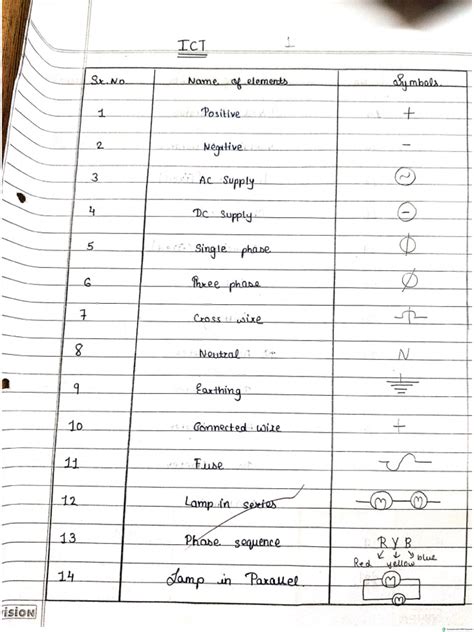 ICT 1
Sr.No Name of elements Symbols
1 Positive +
2 Negative -
3 AC Supply ~
4 DC Supply -
5 Single phase
6 Three phase
7 Cross wire
8 Neutral N
9 Earthing
10 Connected wire +
11 Fuse
12 Lamp in series M M
13 Phase sequence R Y B
Red yellow blue
14 Lamp in Parallel M M
ision